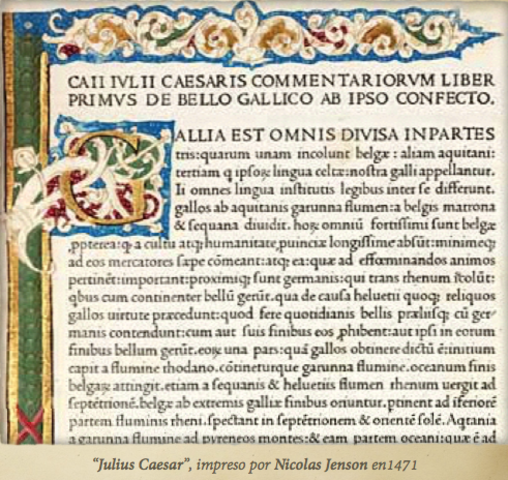 CAII IVLII CAESARIS COMMENTARIORVM LIBER
PRIMVS DE BELLO GALLICO AB IPSO CONFECTO.
GALLIA EST OMNIS DIVISA IN PARTES
tris: quarum unam incolunt belgæ: aliam aquitani:
tertiam q ipsoꝝ lingua celtæ: nostra galli appellantur.
Ii omnes lingua institutis legibus inter se differunt.
gallos ab aquitanis garunna flumen: a belgis matrona
& sequana diuidit. hoꝝ omniū fortissimi sunt belgæ
ꝓpterea: ꝙ a cultu atqꝫ humanitate ꝓuinciæ longissime absūt: minimeqꝫ
ad eos mercatores sæpe cōmeant: atqꝫ ea: quæ ad effœminandos animos
pertinēt: important: proximiqꝫ sunt germanis: qui trans rhenum īcolūt:
qbus cum continenter bellū gerūt. qua de causa heluetii quoqꝫ reliquos
gallos uirtute præcedunt: quod fere quotidianis bellis præliisqꝫ cū ger
manis contendunt: cum aut suis finibus eos ꝓhibent: aut ipsi in eorum
finibus bellum gerūt. eoꝝ una pars: quā gallos obtinere dictū ē: initium
capit a flumine rhodano. cōtinetur garunna flumine. oceanum finis
belgaꝝ attingit. etiam a sequanis & heluetiis flumen rhenum uergit ad
septētrionē. belgæ ab extremis galliæ finibus oriuntur. ptinent ad īferiorē
partem fluminis rheni. spectant in septētrionem & orientē solē. Aqtania
a garunna flumine ad pyreneos montes: & eam partem oceani: quæ ē ad
“Julius Caesar”, impreso por Nicolas Jenson en 1471